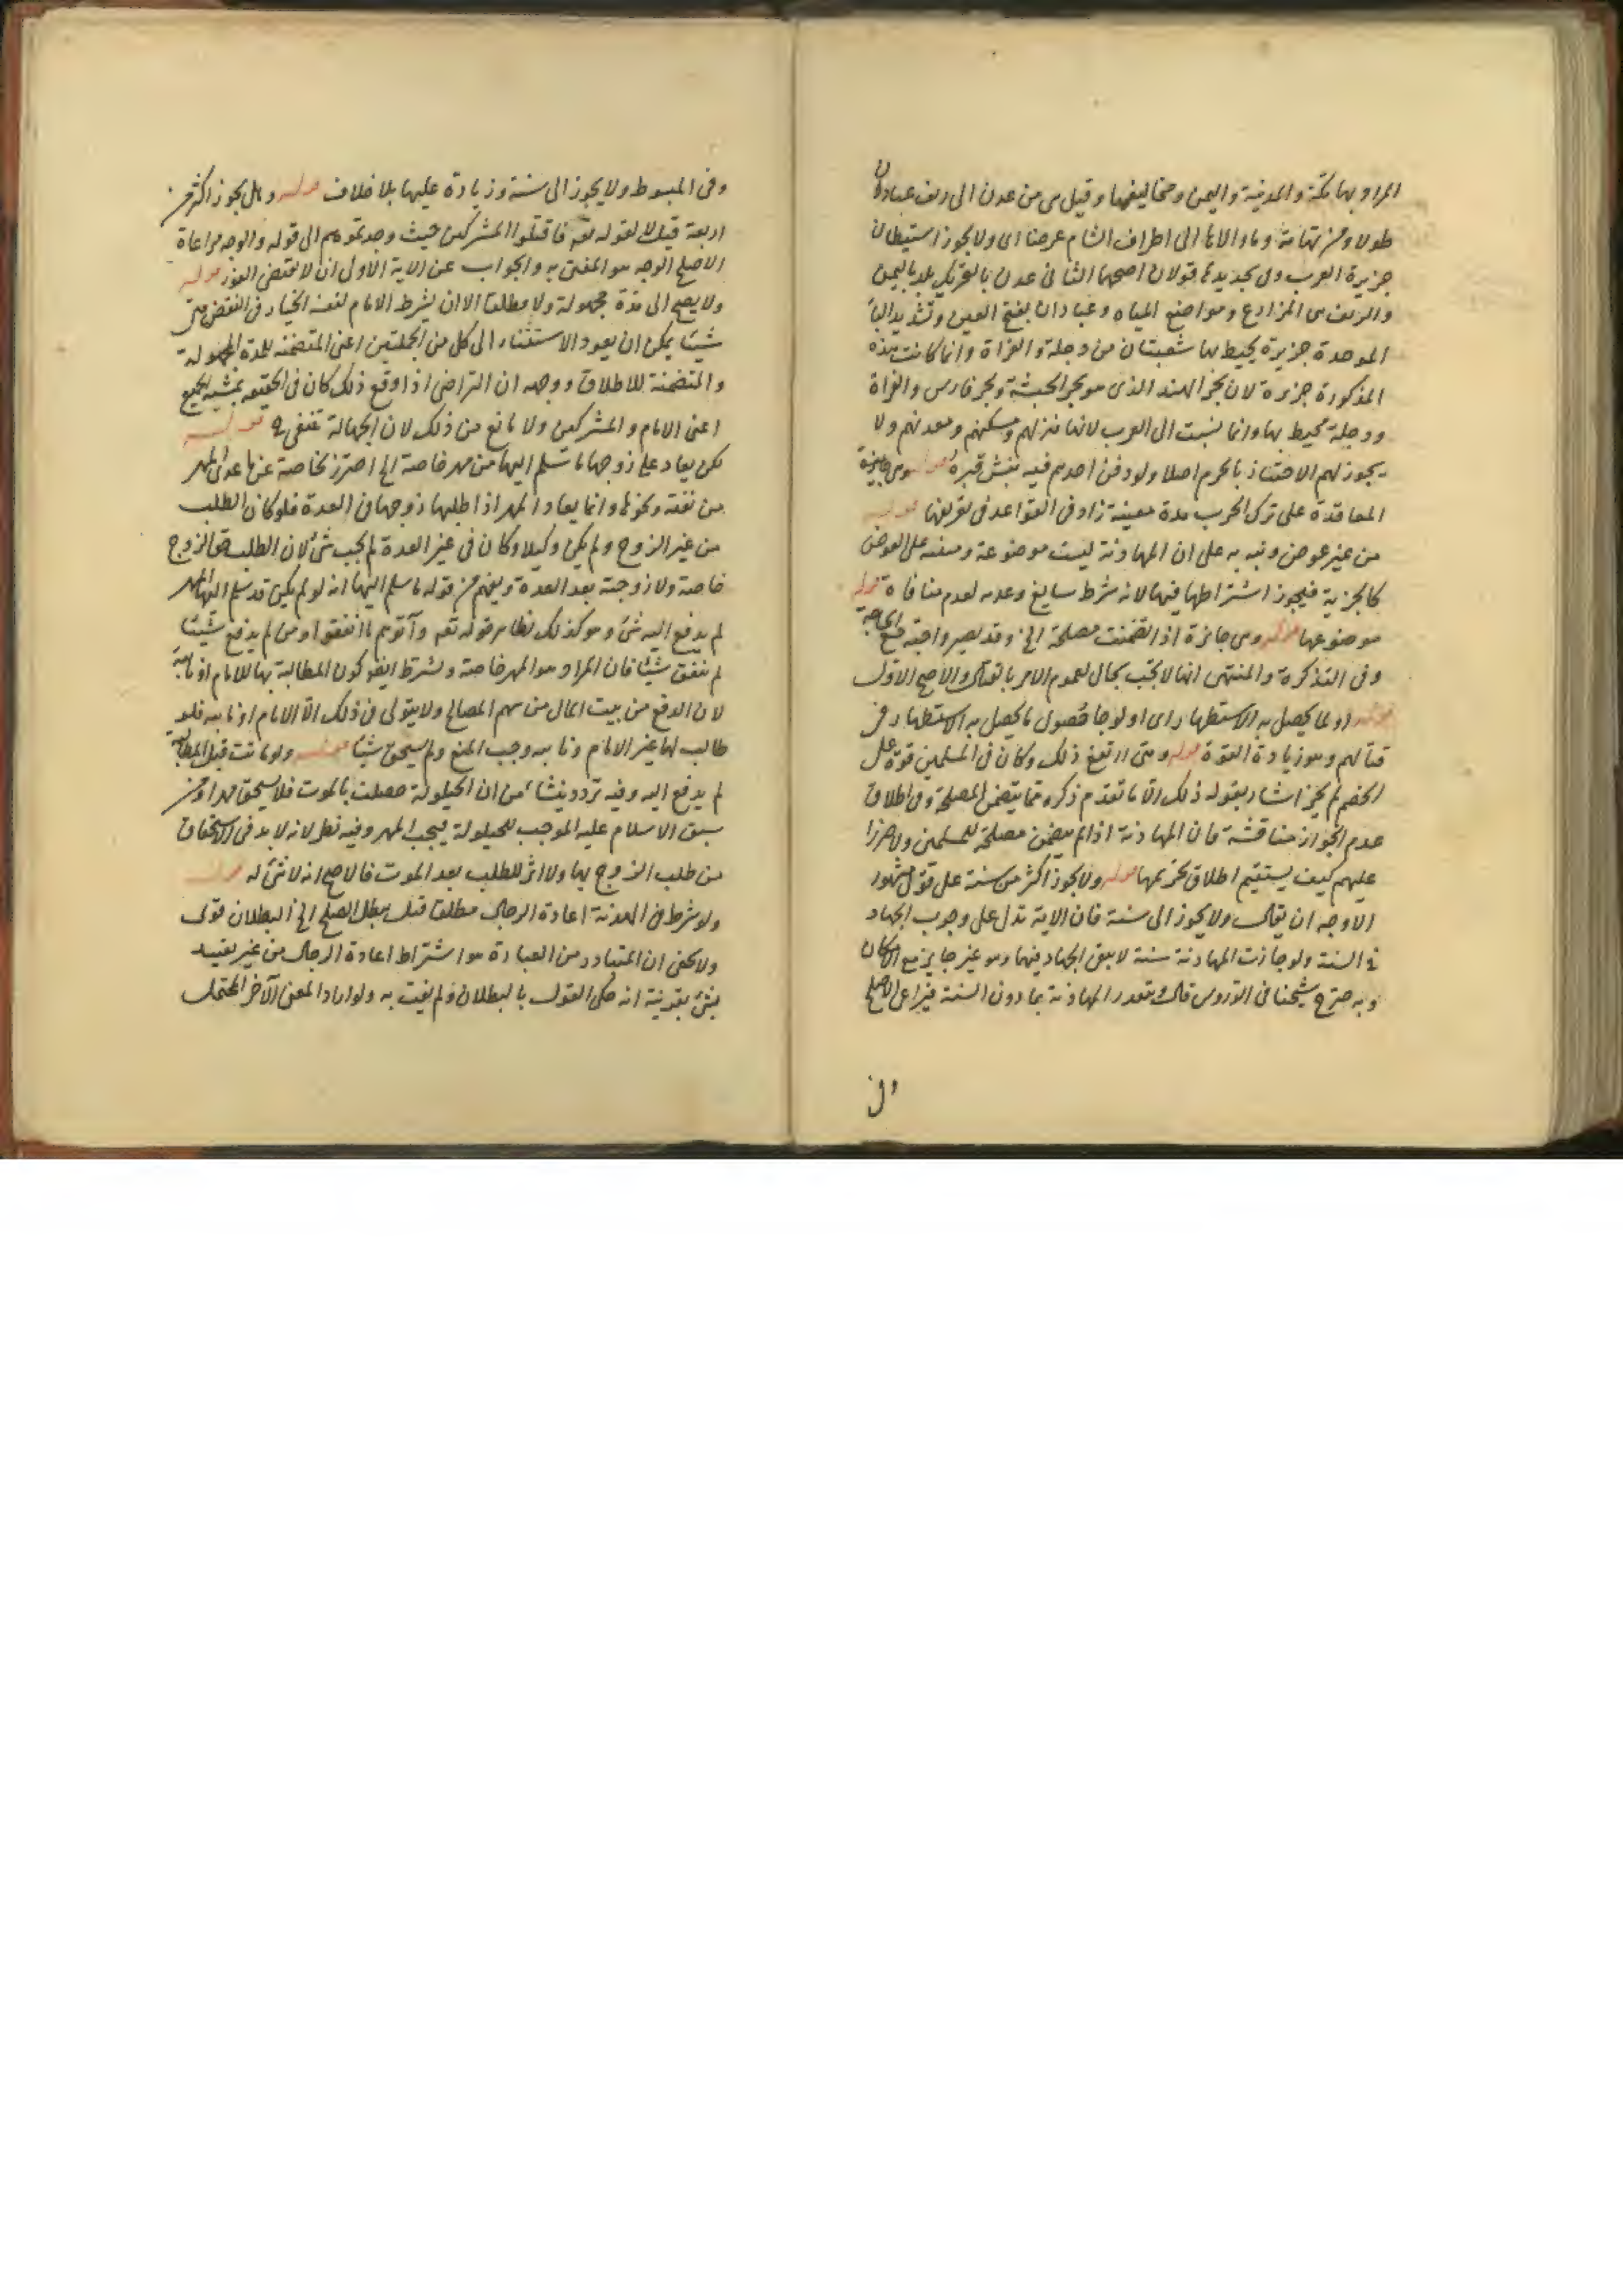 المراد بها مكة والمدينة واليمن ومخاليفها وقيل هي من عدن الى ريف عبادان
طولا ومن تهامة وما والاها الى اطراف الشام عرضا اى ولا يجوز استيطان
جزيرة العرب وفى تحديدها قولان اصحهما الثانى عدن بالتحريك بلد باليمن
والريف هى المزارع ومواضع المياه وعبادان بفتح العين وتشديد الباء
الموحدة جزيرة يحيط بها شعبتان من دجلة والفراة وانما كانت هذه
المذكورة جزيرة لان بحر الهند الذى هو بحر الحبشة وبحر فارس والفراة
ودجلة محيط بها وانما نسبت الى العرب لانها منزلهم ومسكنهم ومعدنهم ولا
يجوز لهم الاجتياز بالحرم اصلا ولو دفن احدهم فيه نبش قبره قوله وهى جايزة
المعاقدة على ترك الحرب مدة معينة زاد فى القواعد فى تعريفها قوله
من غير عوض ونبه به على ان المهادنة ليست موضوعة ومبنية على العوض
كالجزية فيجوز اشتراطها فيها لانه شرط سايغ وعدمه لعدم منافاة قوله
موضوعها قوله وهى جائزة اذا تضمنت مصلحة الخ وقد يصير واجبة مع الحاجة
وفى التذكرة والمنتهى انها لا يجب بحال لعموم الامر بالقتال والاصح الاول
قوله او لما يحصل به الاستظهار اى او لرجا حصول ما يحصل به الاستظهار فى
قتالهم وهو زيادة القوة قوله ومتى ارتفع ذلك وكان فى المسلمين قوة على
الخصم لم يجز اشار بقوله ذلك الى ما تقدم ذكره مما يتضمن المصلحة وفى اطلاق
عدم الجواز مناقشة فان المهادنة اذا لم يتضمن مصلحة للمسلمين ولا ضررا
عليهم كيف يستقيم اطلاق تحريمها قوله ولا يجوز اكثر من سنة على قول مشهور
الاوجه ان يقال ولا يجوز الى سنة فان الاية تدل على وجوب الجهاد
فى السنة ولو جازت المهادنة سنة لا يبقى الجهاد فيها وهو غير جايز مع الامكان
وبه صرح شيخنا فى الدروس قال ويتقدر المهادنة بما دون السنة فيراعى الاصلح
وفى
وفى المبسوط ولا يجوز الى سنة وزيادة عليها بلا خلاف قوله وهل يجوز اكثر من
اربعة قيل لا لقوله تعم فاقتلوا المشركين حيث وجدتموهم الى قوله والوجه مراعاة
الاصلح الوجه هو المفتى به والجواب عن الاية الاولى ان لا يقتضى الفور قوله
ولا يصح الى مدة مجهولة ولا مطلقا الا ان يشرط الامام لنفسه الخيار فى النقض متى
شيئا يمكن ان يعود الاستثناء الى كل من الجملتين اعنى المتضمنة للمدة المجهولة
والمتضمنة للاطلاق ووجهه ان التراضى اذا وقع ذلك كان فى الحقيقة بمشية الجميع
اعنى الامام والمشركين ولا مانع من ذلك لان الجهالة تنتفى ح قوله
لكن يعاد على زوجها ما سلم اليها من مهر خاصة الخ احترز بخاصة عن ما عدى المهر
من نفقة ونحوها وانما يعاد المهر اذا طلبها زوجها فى العدة فلو كان الطلب
من غير الزوج ولم يكن وكيلا وكان فى غير العدة لم يجب شئ لان الطلب حق الزوج
خاصة ولا زوجية بعد العدة ويفهم من قوله ما سلم اليها انه لو لم يكن قد سلم اليها المهر
لم يدفع اليه شئ وهو كذلك لظاهر قوله تعم وآتوهم ما انفقوا ومن لم يدفع شيئا
لم ينفق شيئا فان المراد هو المهر خاصة ويشرط ايضا كون المطالبة بها للامام او نايبه
لان الدفع من بيت المال من سهم المصالح ولا يتولى فى ذلك الا الامام او نايبه فلو
طالب لها غير الامام ونايبه وجب المنع ولم يستحق شيئا قوله ولو ماتت قبل المطالبة
لم يدفع اليه وفيه تردد ينشاء من ان الحيلولة حصلت بالموت فلا يستحق مهرا ومن
سبق الاسلام عليه الموجب للحيلولة فيجب المهر وفيه نظر لانه لا بد فى الاستحقاق
من طلب الزوج بها ولا اثر للطلب بعد الموت فالاصح انه لا شئ له قوله
ولو شرط فى الهدنة اعادة الرجال مطلقا قيل يبطل الصلح الخ البطلان قوى
ولا يخفى ان المتبادر من العبارة هو اشتراط اعادة الرجال من غير تقييد
بشئ بقرينة انه حكى القول بالبطلان ولم يفت به ولو اراد المعنى الآخر المحتمل